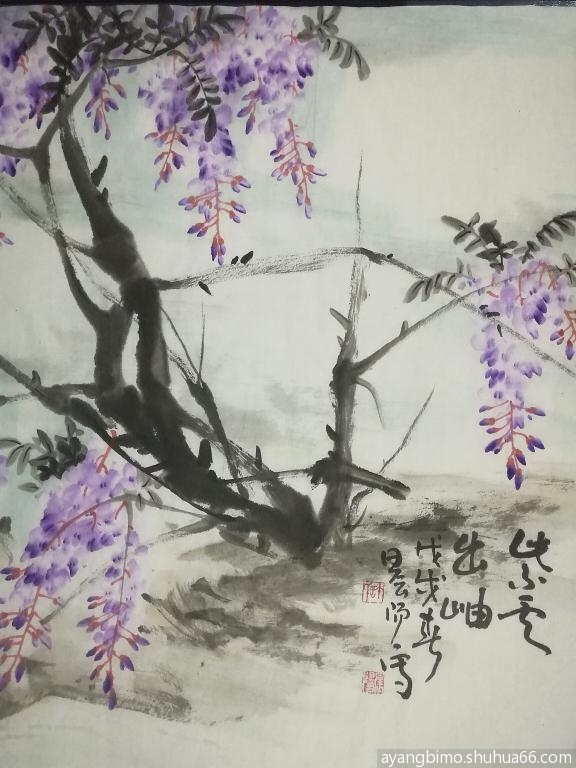 紫云
出岫
戊戌春
昌云师写
ayangbimo.shuhua66.com